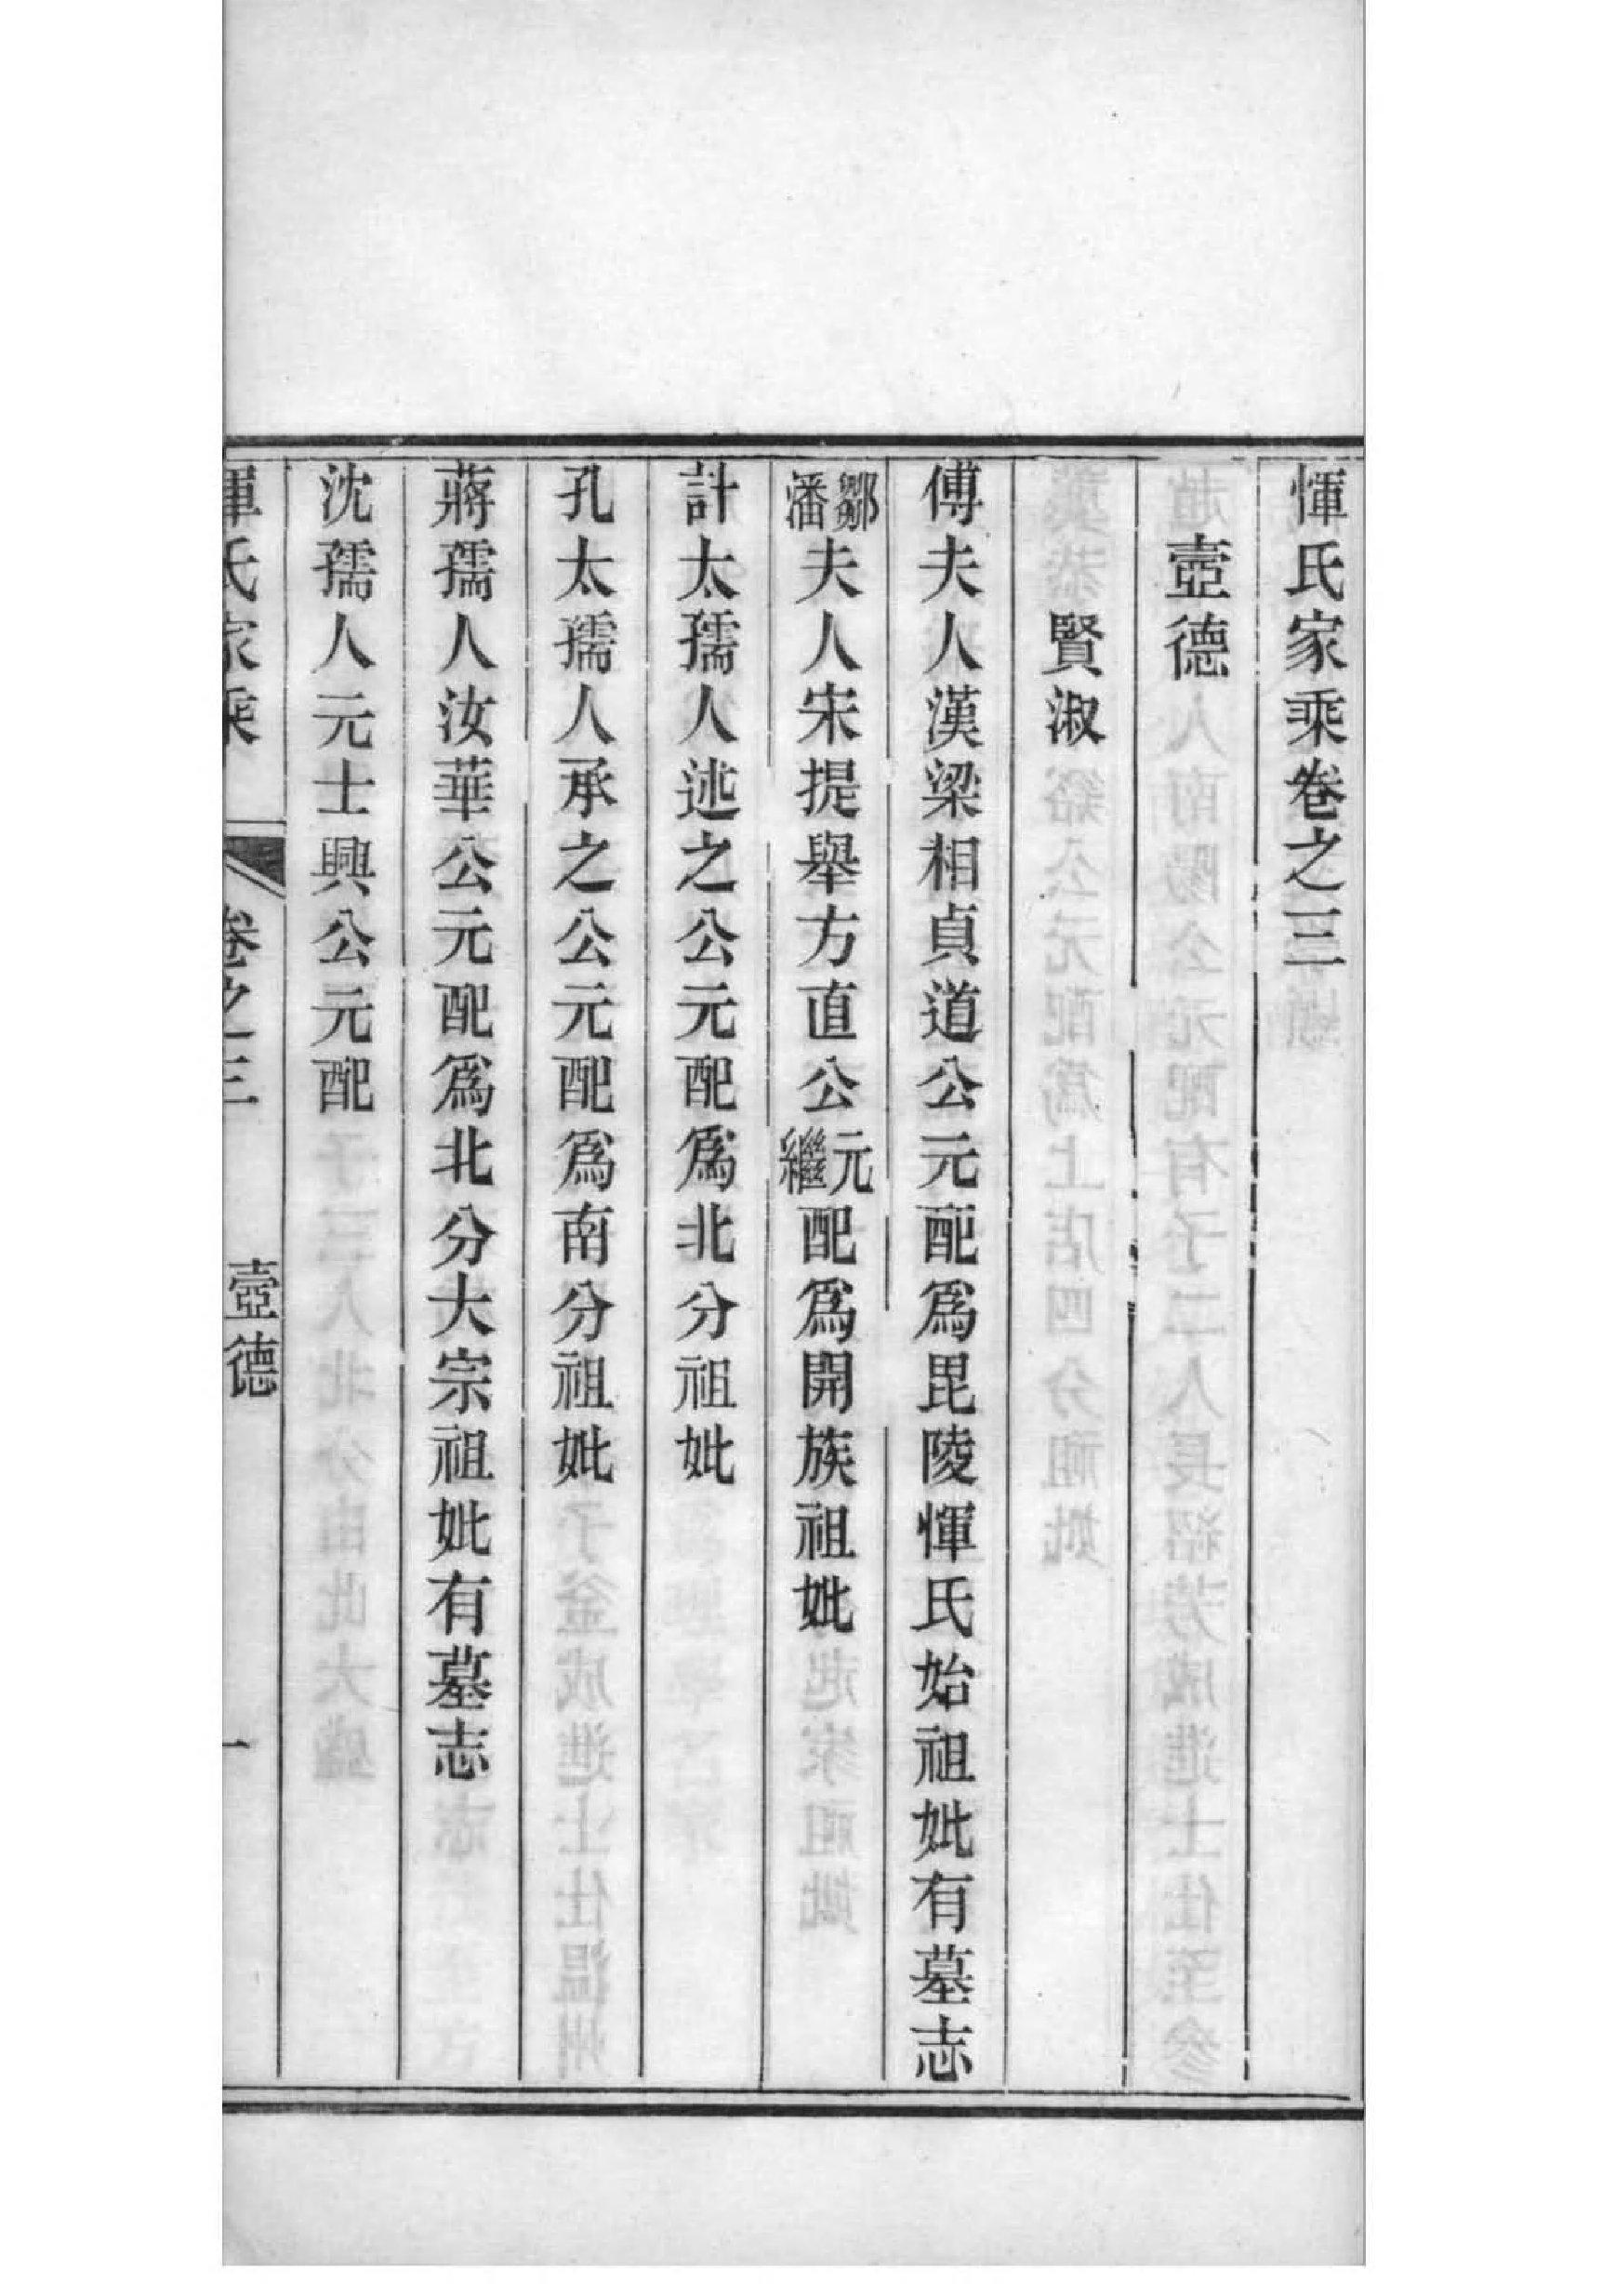 惲氏家乘卷之三
壼德
賢淑
傅夫人漢梁相貞道公元配爲毘陵惲氏始祖妣有墓志
鄒潘夫人宋提舉方直公元繼配爲開族祖妣
計太孺人述之公元配爲北分祖妣
孔太孺人承之公元配爲南分祖妣
蔣孺人汝華公元配爲北分大宗祖妣有墓志
沈孺人元士興公元配
惲氏家乘 卷之三 壼德 一